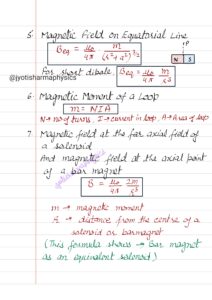 5. Magnetic Field on Equatorial Line
Beq = μ₀/4π · m/(r²+a²)^3/2
P
N S
@jyotisharmaphysics
For short dipole, Beq = μ₀/4π m/r³
6. Magnetic Moment of a Loop
m = NIA
N → no of turns, I → current in loop, A → Area of loop
7. Magnetic field at the far axial field of
a solenoid
And magnetic field at the axial point
of a bar magnet
B = μ₀/4π 2m/r³
m → magnetic moment
r → distance from the centre of a
solenoid or barmagnet
(This formula shows → Bar magnet
as an equivalent solenoid)